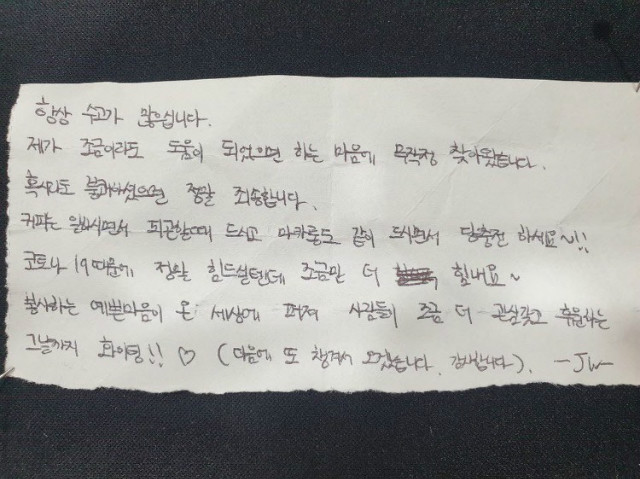 항상 수고가 많으십니다.
제가 조금이라도 도움이 되었으면 하는 마음에 무작정 찾아왔습니다.
혹시라도 불쾌하셨으면 정말 죄송합니다.
커피는 일하시면서 피곤할때 드시고 마카롱도 같이 드시면서 당충전 하세요~!!
코로나 19때문에 정말 힘드실텐데 조금만 더 힘내요~
봉사하는 예쁜마음이 온 세상에 퍼져 사람들이 조금 더 관심갖고 후원하는
그날까지 화이팅!! ♡ (다음에 또 챙겨서 오겠습니다. 감사합니다). -JW-